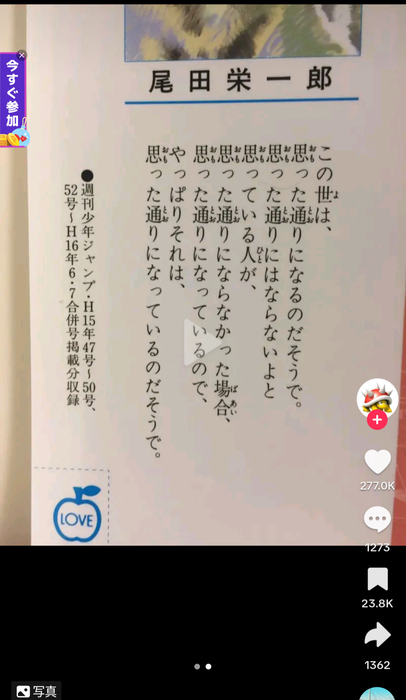 尾田栄一郎
この世は、
思った通りになるのだそうで。
思った通りにはならないよと
思っている人が、
思った通りにならなかった場合、
思った通りになっているので、
やっぱりそれは、
思った通りになっているのだそうで。
●週刊少年ジャンプ・H15年47号〜50号、
52号〜H16年6・7合併号掲載分収録
LOVE
今すぐ参加
277.0K
1273
23.8K
1362
写真